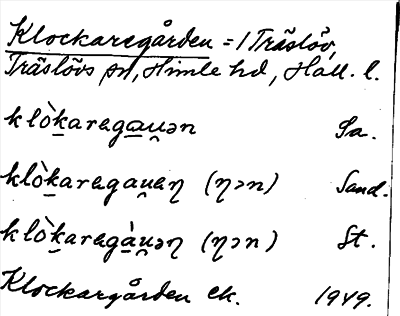 Klockaregården = 1 Träslöv,
Träslövs sn, Himle hd, Hall. l.
klòkaragau̯ən Sa.
klòkaragau̯aŋ (ŋɔn) Sand.
klòkaragàu̯əŋ (ŋɔn) St.
Klockargården ek. 1949.